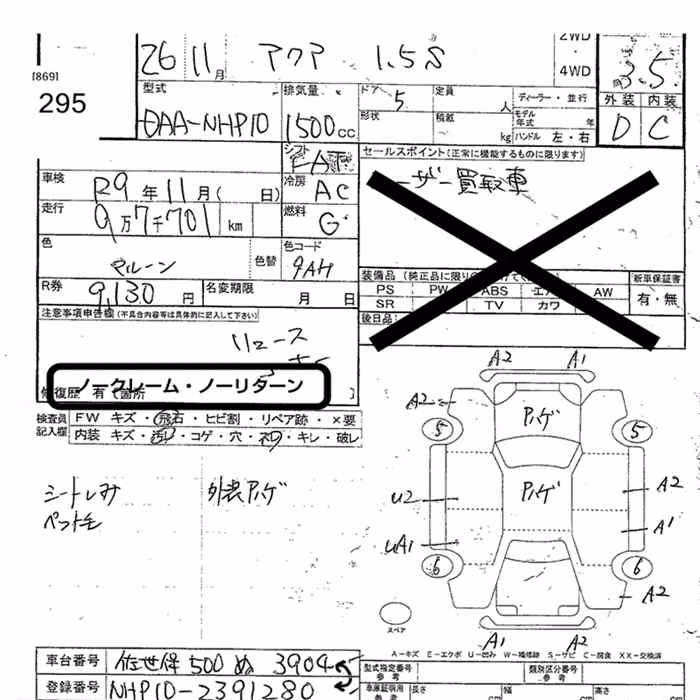 26 11月 アクア 1.5S 2WD・4WD 3.5
[869]
295
型式 排気量 ドア 定員 人 ディーラー・並行 外装 内装
DAA-NHP10 1500cc 5 形状 積載 kg モデル年式 年 ハンドル 左・右 D C
シフト FAT セールスポイント(正常に機能するものに限ります)
車検 R9年11月( 日) 冷房 AC ーザー買取車
走行 9万7千701 km 燃料 G
色 マルーン 色替 色コード 9AH
装備品(純正品に限り 新車保証書
PS PW ABS エア AW 有・無
SR TV カワ
R券 9,130円 名変期限 月 日
後日品
注意事項申告欄(不具合内容等は具体的に記入して下さい)
リユース
ノークレーム・ノーリターン
修復歴 有 箇所
検査員記入欄 FW キズ・飛石・ヒビ割・リペア跡・×要
内装 キズ・汚レ・コゲ・穴・ネタ・キレ・破レ
A2 A1
A2 ハゲ
5 5
シートしみ 外装ハゲ
ペット毛
U2 ハゲ A2
UA1 A1
6 6
A2
スペア A1 A2
A-キズ E-エクボ U-凹み W-補修跡 S-サビ C-腐食 XX-交換済
車台番号 佐世保 500 ぬ 3904
登録番号 NHP10-2391280
型式指定番号 参考 類別区分番号 参考
車庫証明用 参考 長さ cm 幅 cm 高さ